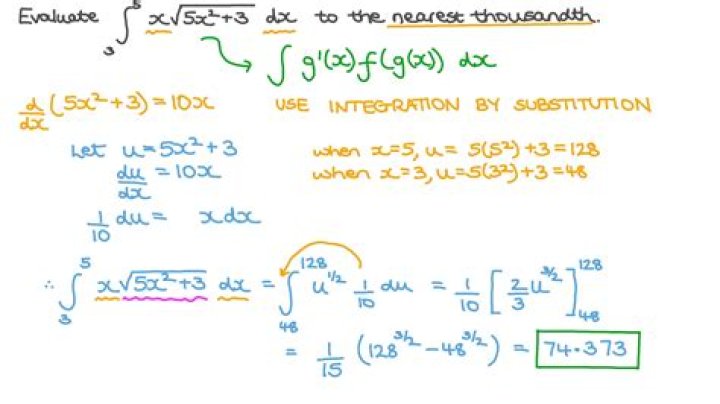 Evaluate ∫₃⁵ x√(5x²+3) dx to the nearest thousandth.
∫ g'(x) f(g(x)) dx
d/dx (5x²+3) = 10x USE INTEGRATION BY SUBSTITUTION
Let u = 5x²+3 when x=5, u= 5(5²)+3 = 128
du/dx = 10x when x=3, u=5(3²)+3 = 48
1/10 du = x dx
∴ ∫₃⁵ x√(5x²+3) dx = ∫₄₈¹²⁸ u^(1/2) 1/10 du = 1/10 [2/3 u^(3/2)]₄₈¹²⁸
= 1/15 (128^(3/2) − 48^(3/2)) = 74.373